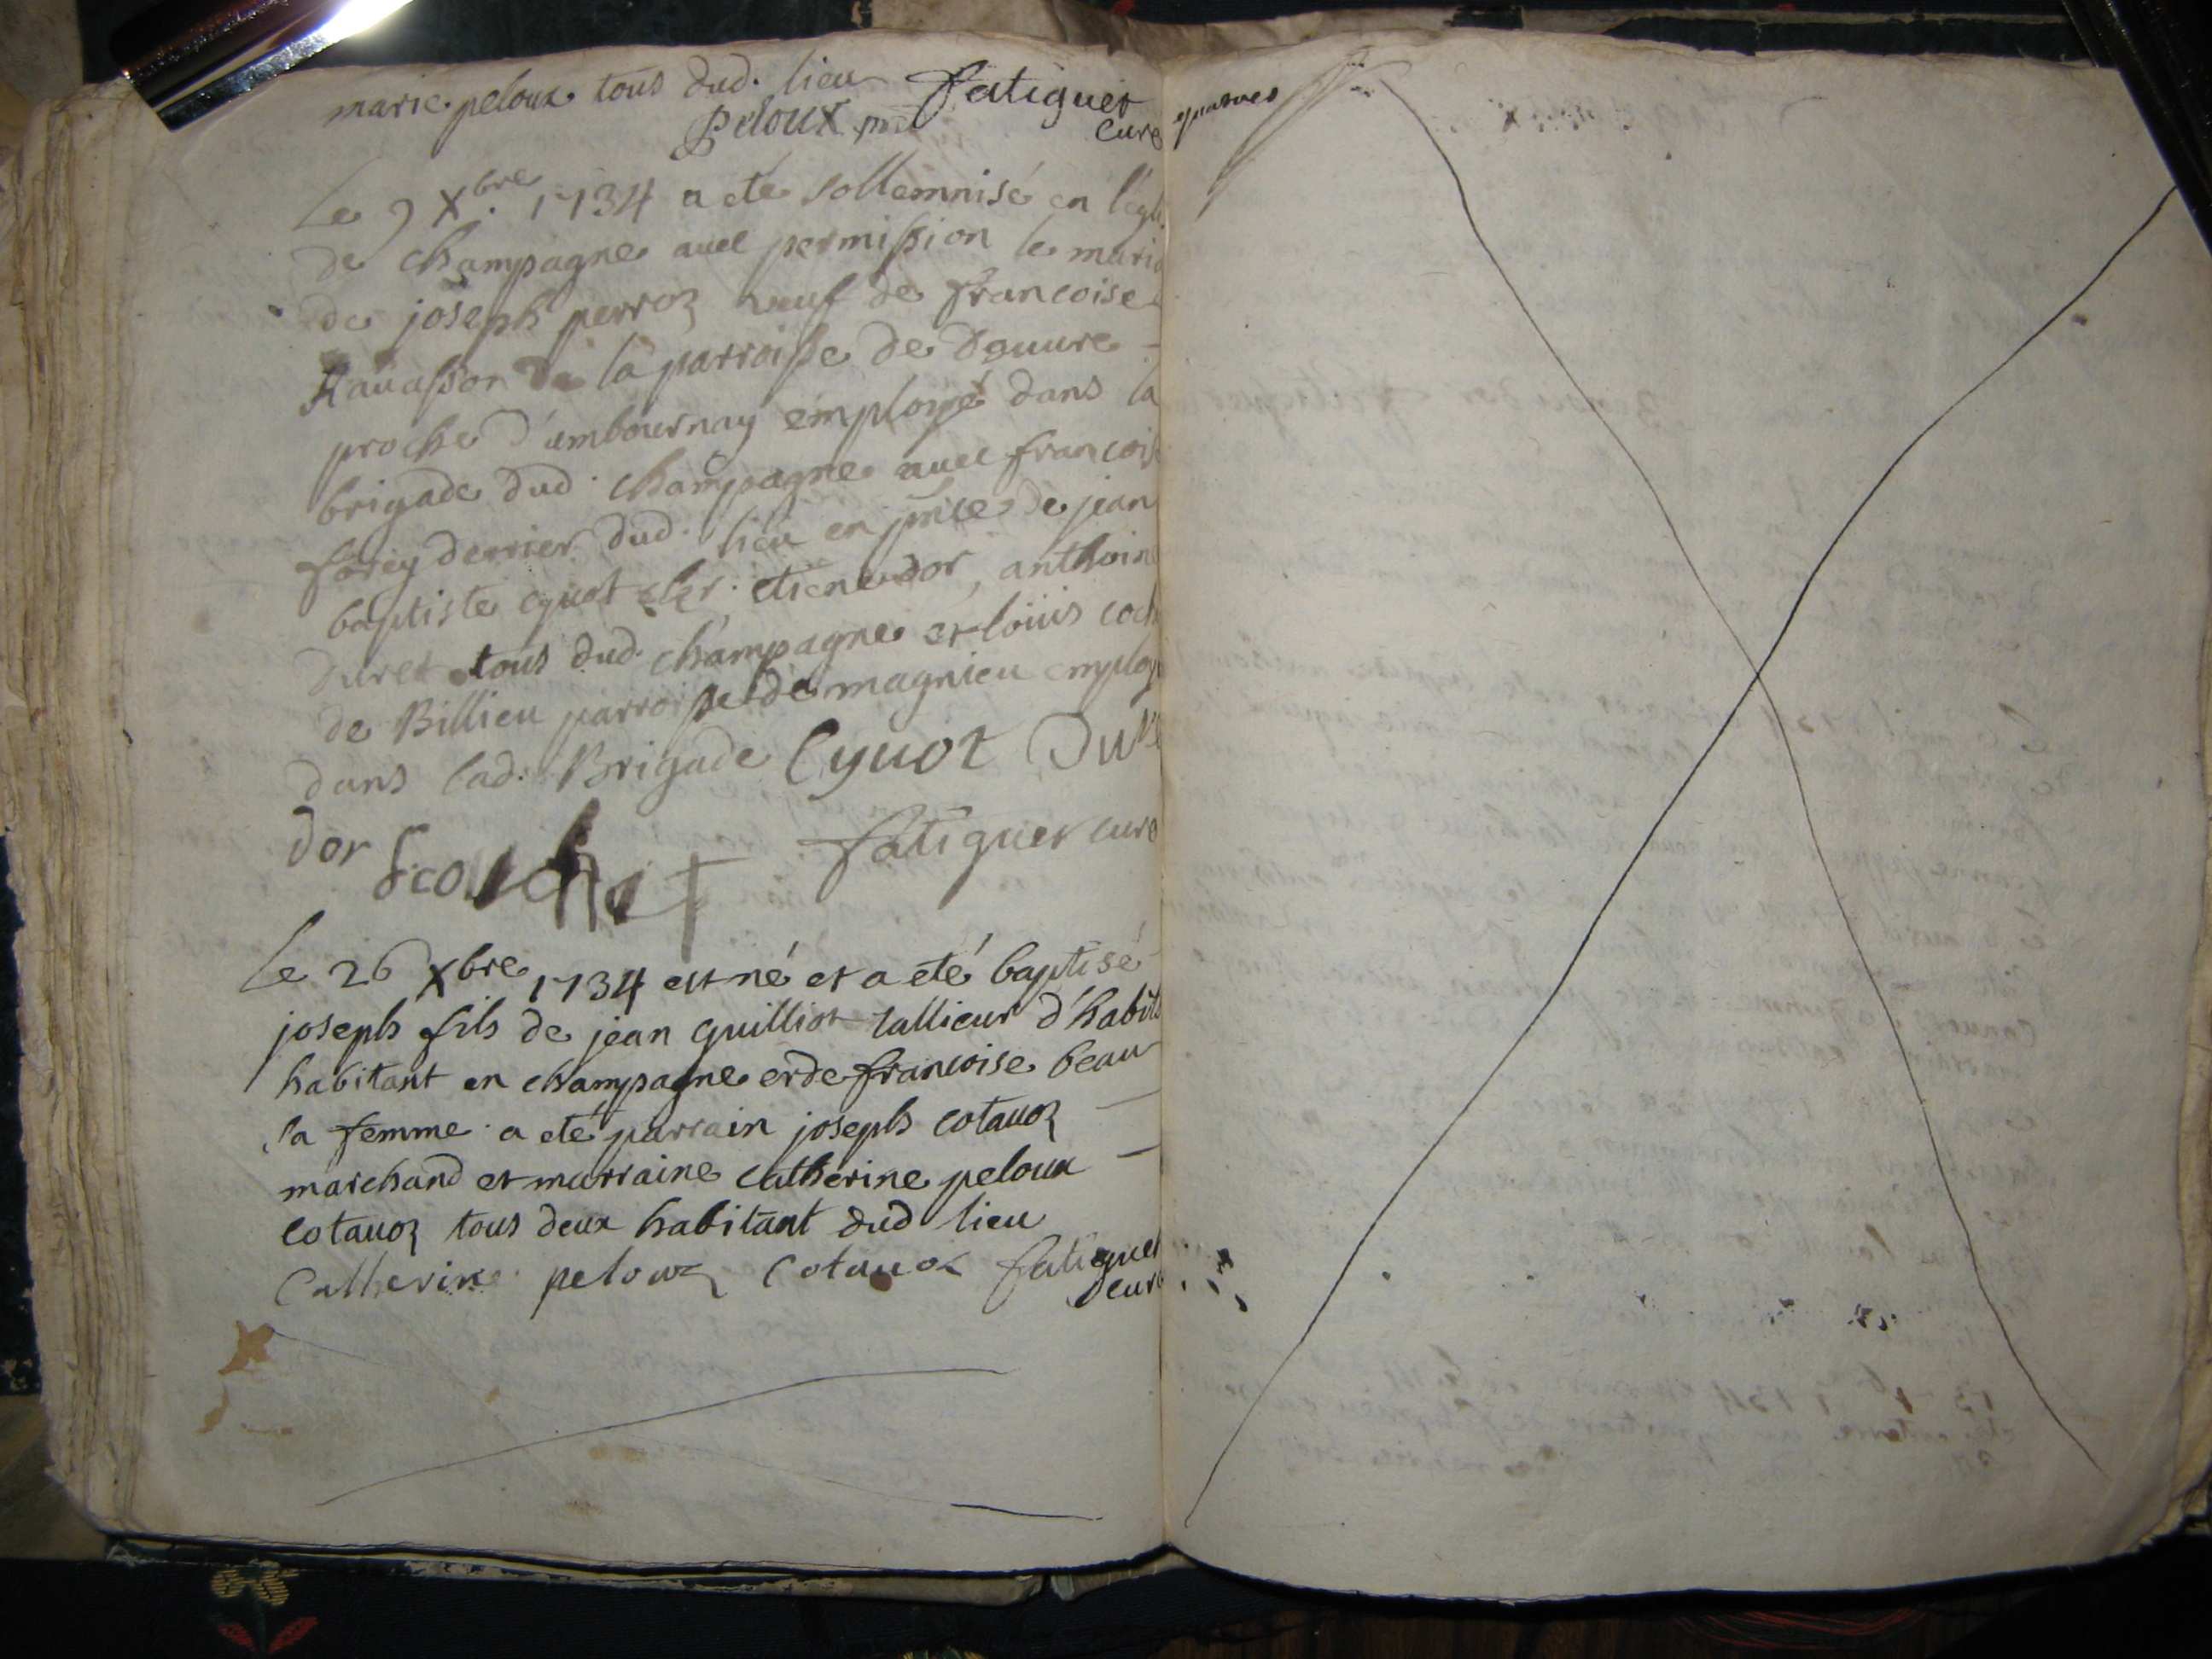 marie peloux tous dud. lieu fatiguet
peloux curé
Le 9 Xbre. 1734 a eté sollemnisé en l'egli
de champagne avec permission le maria
de joseph perroz veuf de francoise
Ravasson de la parroisse de
proche d'ambournay employé dans la
brigade dud. champagne avec francoise
forey derrier dud. lieu en pnce de jean
baptiste cyuot cler. etiene dor, anthoine
duret tous dud. champagne et loüis coch
de Billieu parroisse de magnieu employ
dans lad. Brigade Cyuot Dure
dor fatiguet curé
Le 26 Xbre 1734 est né et a eté baptisé
joseph fils de jean guilliot tallieur d'habits
habitant en champagne et de francoise beau
sa femme a eté parrain joseph cotavoz
marchand et marraine catherine peloux
cotavoz tous deux habitant dud lieu
Catherine pelouz Cotavoz fatiguet
curé